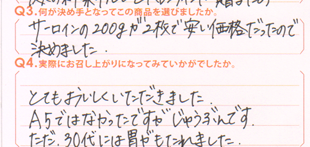 Q3.何が決め手となってこの商品を選びましたか。
サーロインの200gが2枚で安い価格だったので
決めました.
Q4.実際にお召し上がりになってみていかがでしたか。
とてもおいしくいただきました.
A5ではなかったですがじゅうぶんです.
ただ、30代には胃がもたれました.